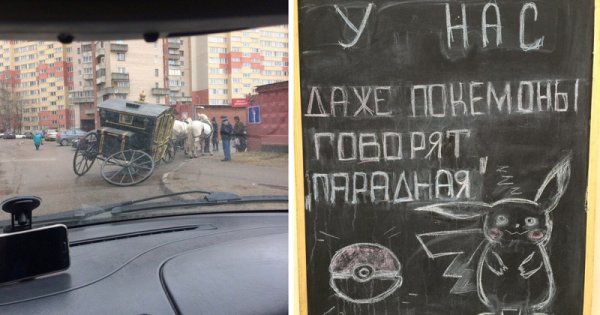 У НАС
ДАЖЕ ПОКЕМОНЫ
ГОВОРЯТ
"ПАРАДНАЯ"